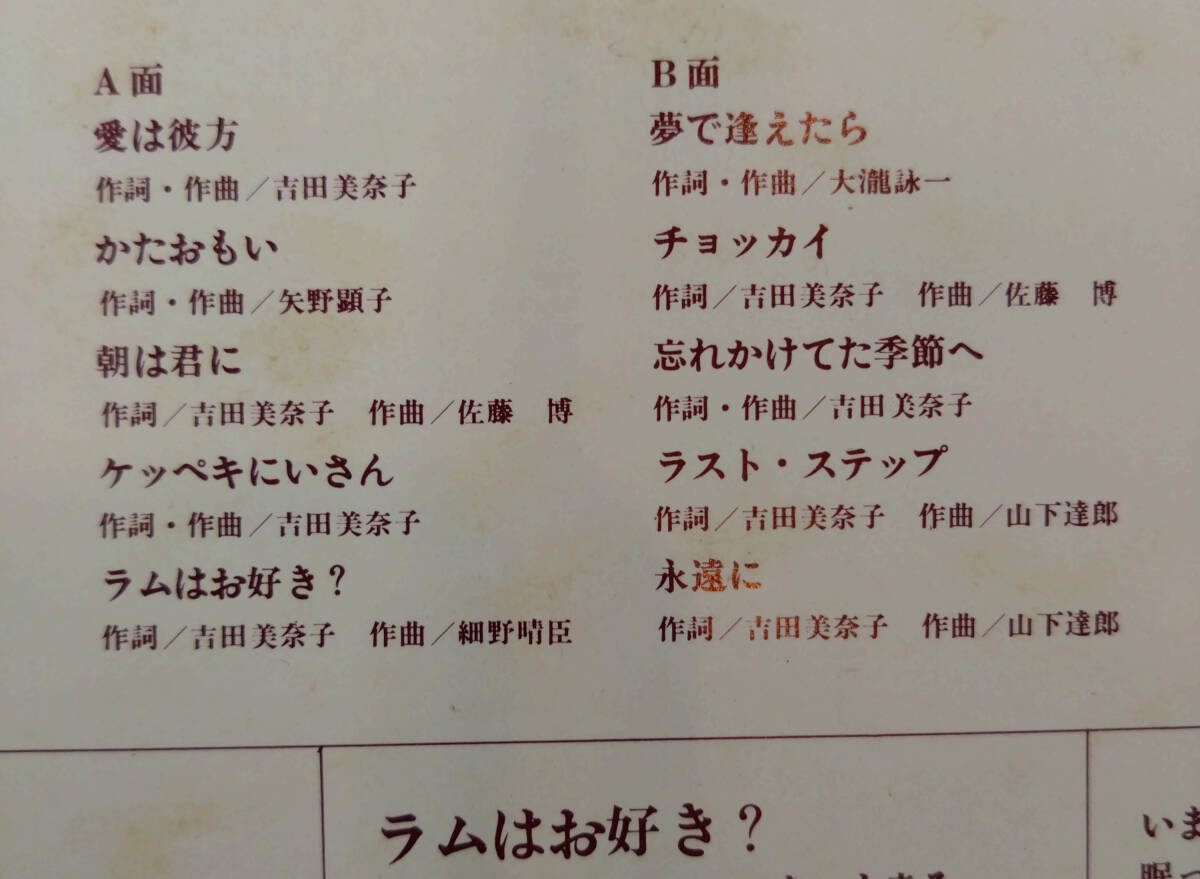 A面
愛は彼方
作詞・作曲／吉田美奈子
かたおもい
作詞・作曲／矢野顕子
朝は君に
作詞／吉田美奈子　作曲／佐藤　博
ケッペキにいさん
作詞・作曲／吉田美奈子
ラムはお好き？
作詞／吉田美奈子　作曲／細野晴臣
B面
夢で逢えたら
作詞・作曲／大瀧詠一
チョッカイ
作詞／吉田美奈子　作曲／佐藤　博
忘れかけてた季節へ
作詞・作曲／吉田美奈子
ラスト・ステップ
作詞／吉田美奈子　作曲／山下達郎
永遠に
作詞／吉田美奈子　作曲／山下達郎
ラムはお好き？
いま
眠っ